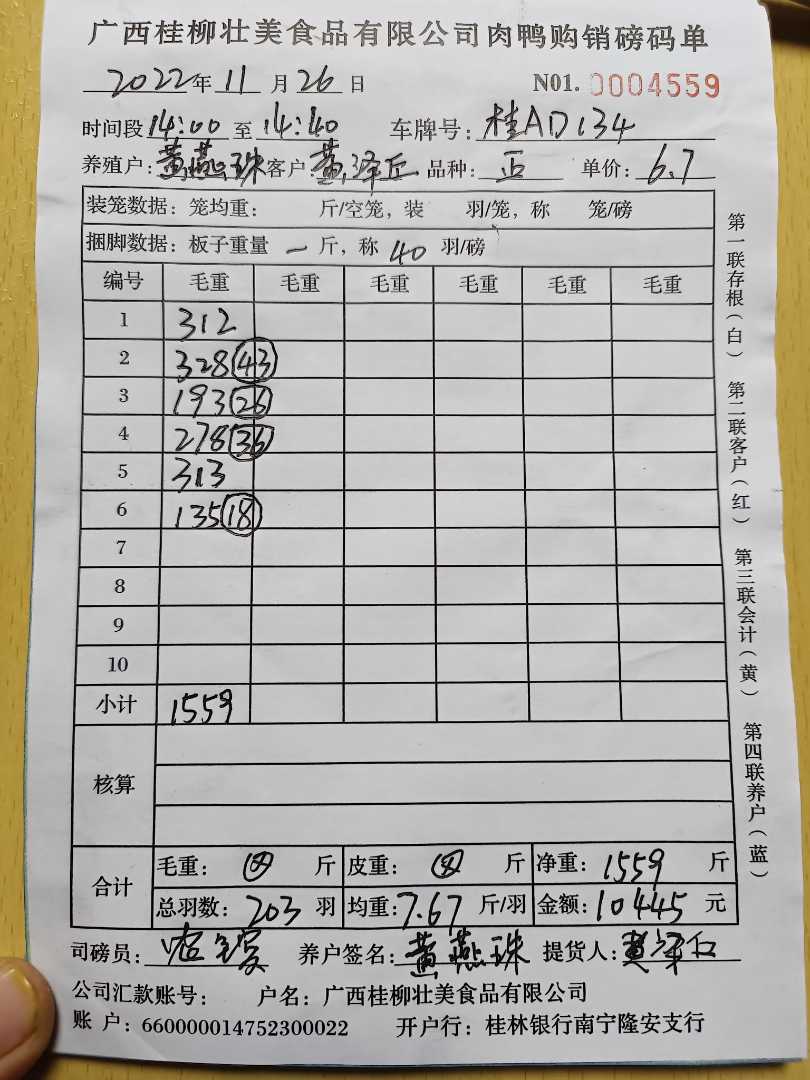 广西桂柳壮美食品有限公司肉鸭购销磅码单
2022年 11 月 26 日 N01. 0004559
时间段 14:00 至 14:40 车牌号: 桂AD134
养殖户: 黄燕珠 客户: 黄泽丘 品种: 正 单价: 6.7
装笼数据: 笼均重: 斤/空笼, 装 羽/笼, 称 笼/磅
捆脚数据: 板子重量 一 斤, 称 40 羽/磅
编号 毛重 毛重 毛重 毛重 毛重 毛重
1 312
2 328 43
3 193 26
4 278 36
5 313
6 135 18
7
8
9
10
小计 1559
核算
合计 毛重: 斤 皮重: 斤 净重: 1559 斤
总羽数: 203 羽 均重: 7.67 斤/羽 金额: 10445 元
司磅员: 养户签名: 黄燕珠 提货人: 黄泽丘
公司汇款账号: 户名: 广西桂柳壮美食品有限公司
账 户: 660000014752300022 开户行: 桂林银行南宁隆安支行
第一联存根(白) 第二联客户(红) 第三联会计(黄) 第四联养户(蓝)